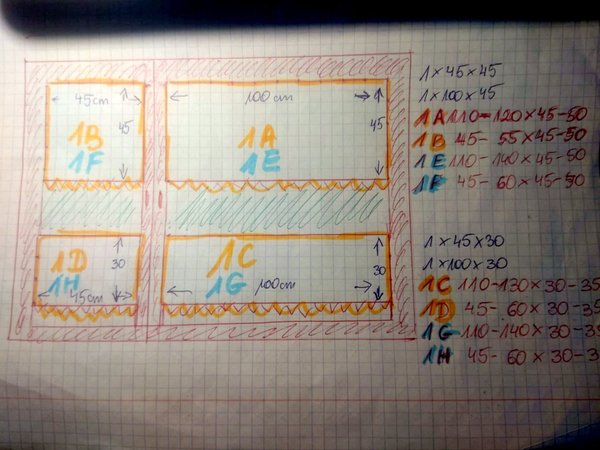 45cm
45
1B
1F
100cm
45
1A
1E
1D
1H
30
45cm
1C
1G
30
100cm
1×45×45
1×100×45
1A 110-120×45-50
1B 45-55×45-50
1E 110-140×45-50
1F 45-60×45-50
1×45×30
1×100×30
1C 110-130×30-35
1D 45-60×30-35
1G 110-140×30-35
1H 45-60×30-3